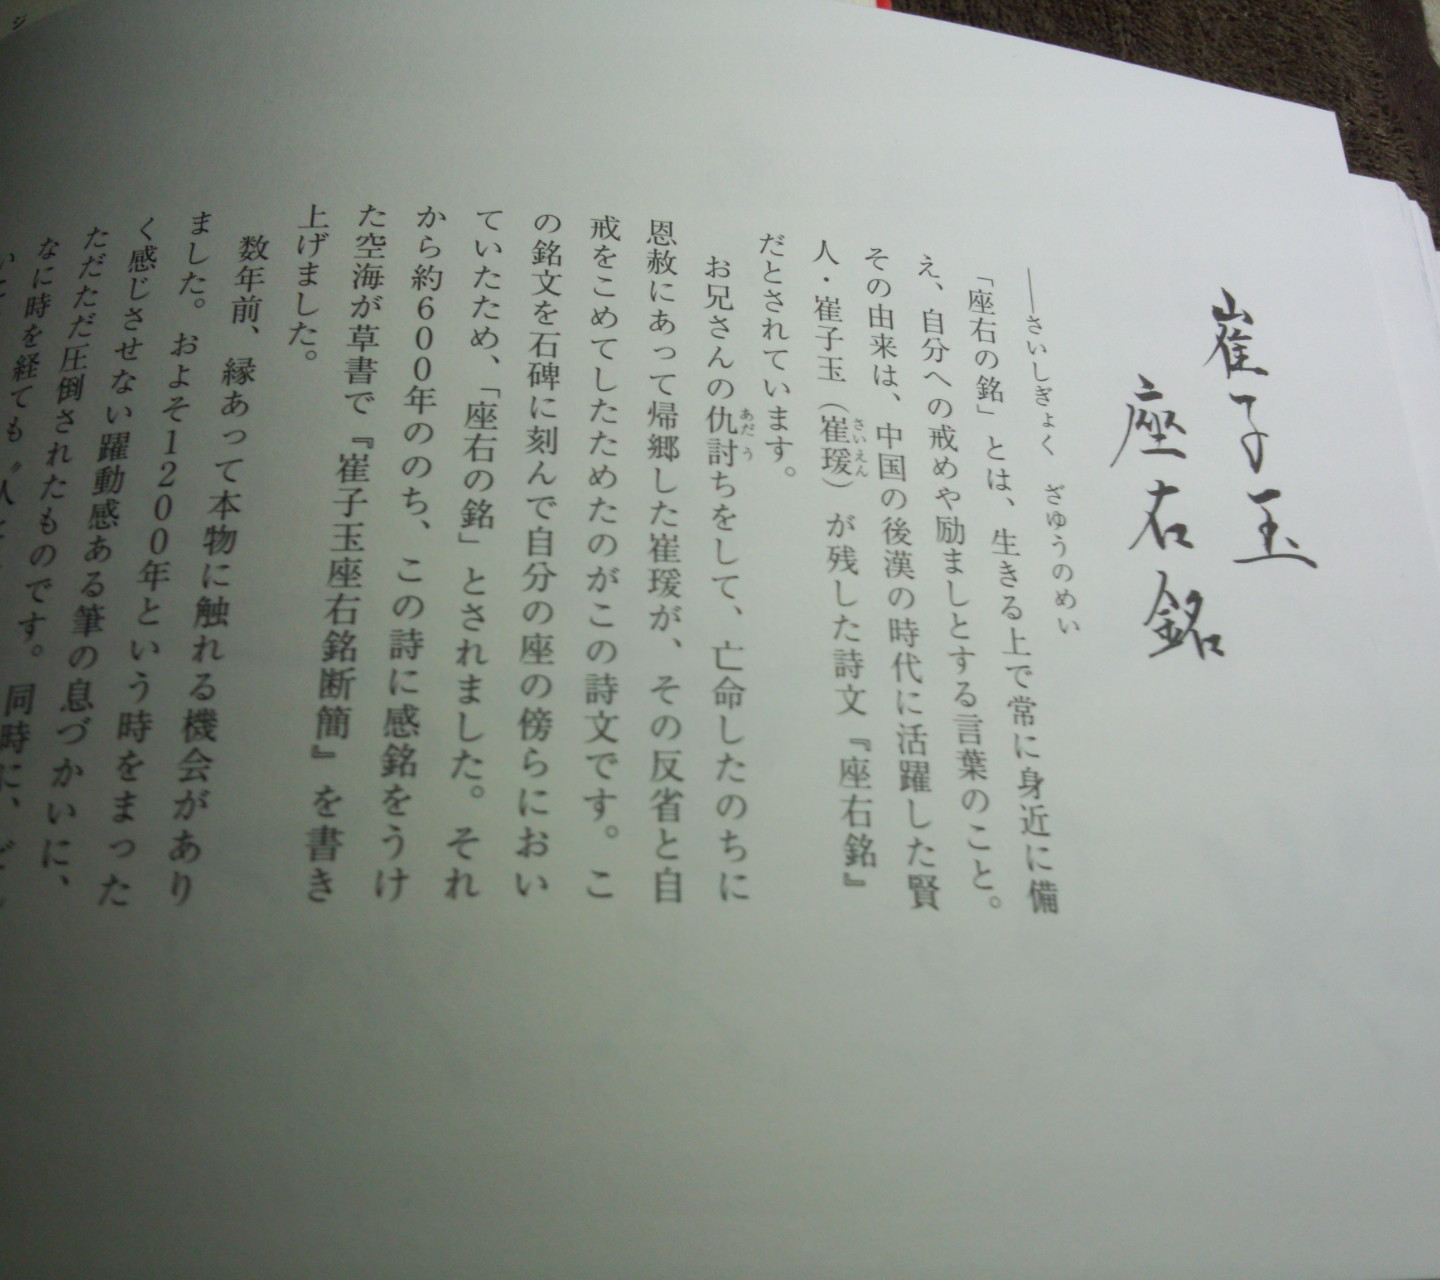 崔子玉
座右銘
――さいしぎょく ざゆうのめい
「座右の銘」とは、生きる上で常に身近に備
え、自分への戒めや励ましとする言葉のこと。
その由来は、中国の後漢の時代に活躍した賢
人・崔子玉（崔瑗）が残した詩文『座右銘』
さいえん
だとされています。
お兄さんの仇討ちをして、亡命したのちに
あだう
恩赦にあって帰郷した崔瑗が、その反省と自
戒をこめてしたためたのがこの詩文です。こ
の銘文を石碑に刻んで自分の座の傍らにおい
ていたため、「座右の銘」とされました。それ
から約600年ののち、この詩に感銘をうけ
た空海が草書で『崔子玉座右銘断簡』を書き
上げました。
数年前、縁あって本物に触れる機会があり
ました。およそ1200年という時をまった
く感じさせない躍動感ある筆の息づかいに、
ただただ圧倒されたものです。同時に、ど
なに時を経ても〝人
ジ